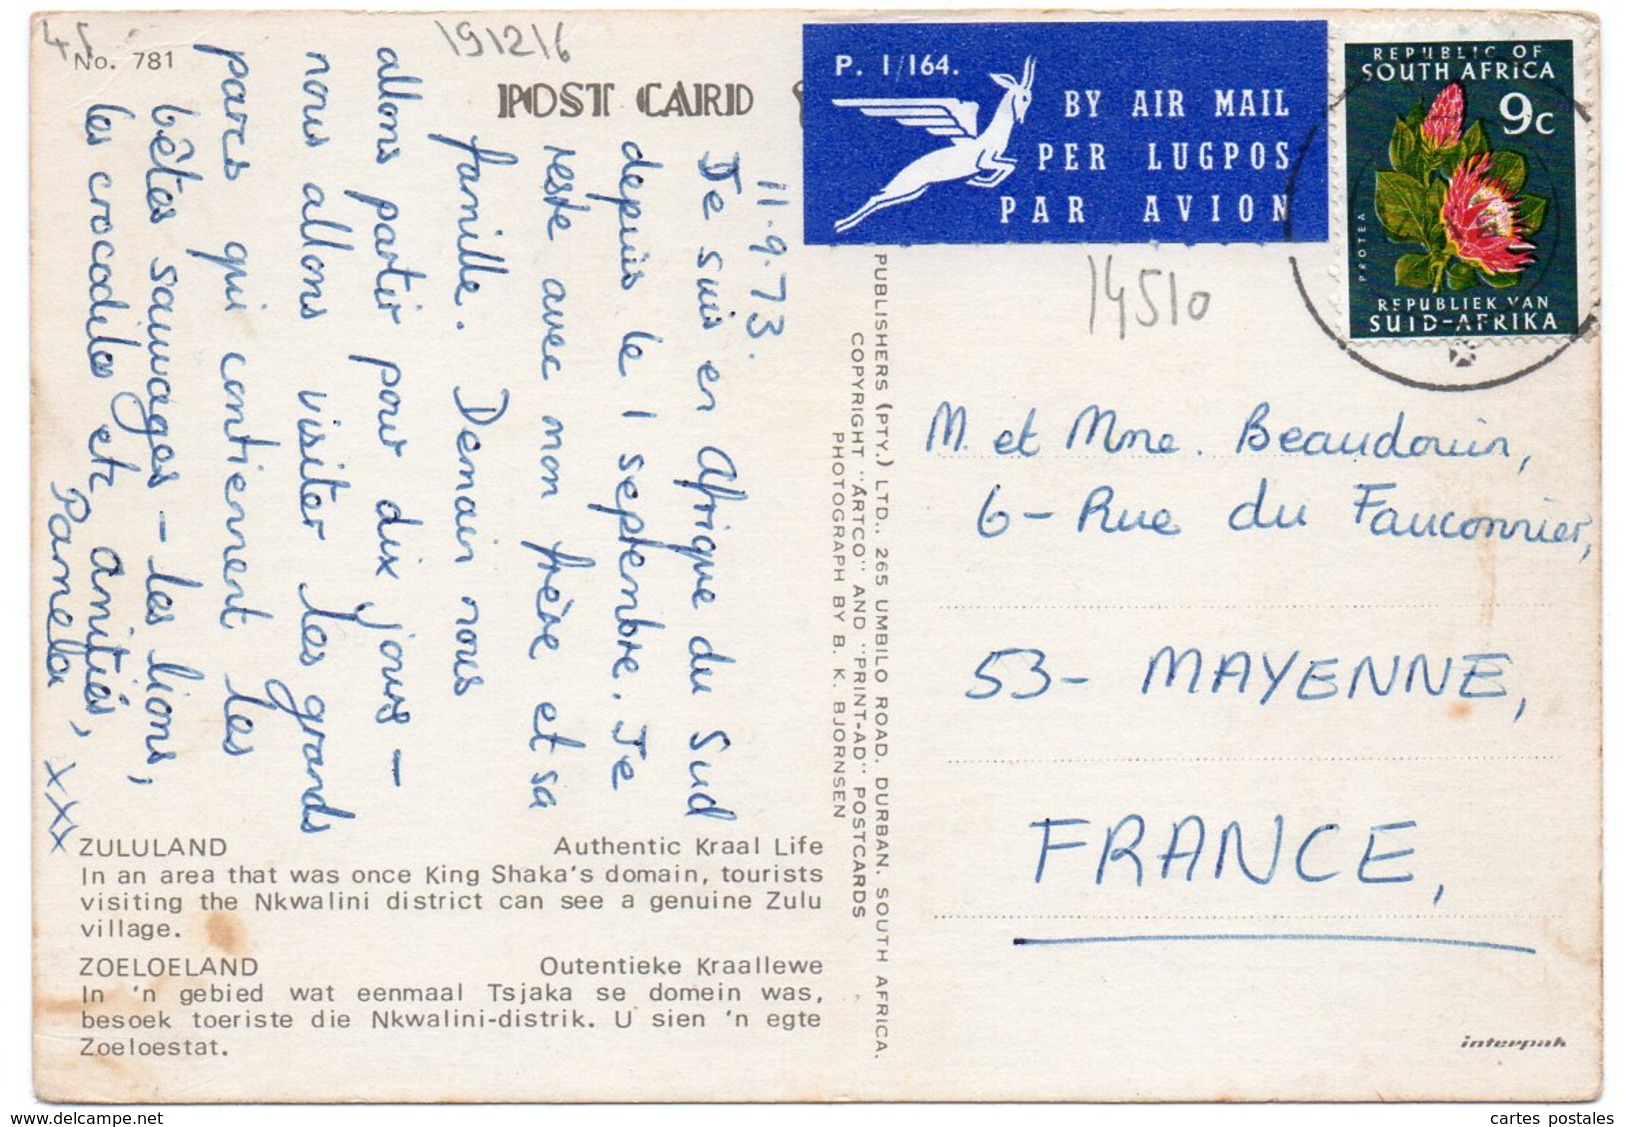 45
No. 781
191216
POST CARD
P. 1/164.
BY AIR MAIL
PER LUGPOS
PAR AVION
REPUBLIC OF
SOUTH AFRICA
9c
PROTEA
REPUBLIEK VAN
SUID-AFRIKA
14510
11.9.73.
Je suis en Afrique du Sud
depuis le 1 septembre. Je
reste avec mon frère et sa
famille. Demain nous
allons partir pour dix jours -
nous allons visiter les grands
parcs qui contiennent les
bêtes sauvages - les lions,
les crocodiles etc amitiés,
Pamela xxx
PUBLISHERS (PTY.) LTD., 265 UMBILO ROAD, DURBAN, SOUTH AFRICA.
COPYRIGHT "ARTCO" AND "PRINT-AD" POSTCARDS
PHOTOGRAPH BY B. K. BJORNSEN
M. et Mme. Beaudouin,
6 - Rue du Fauconnier,
53 - MAYENNE,
FRANCE,
ZULULAND Authentic Kraal Life
In an area that was once King Shaka's domain, tourists
visiting the Nkwalini district can see a genuine Zulu
village.
ZOELOELAND Outentieke Kraallewe
In 'n gebied wat eenmaal Tsjaka se domein was,
besoek toeriste die Nkwalini-distrik. U sien 'n egte
Zoeloestat.
interpak
delcampe.net
cartes postales